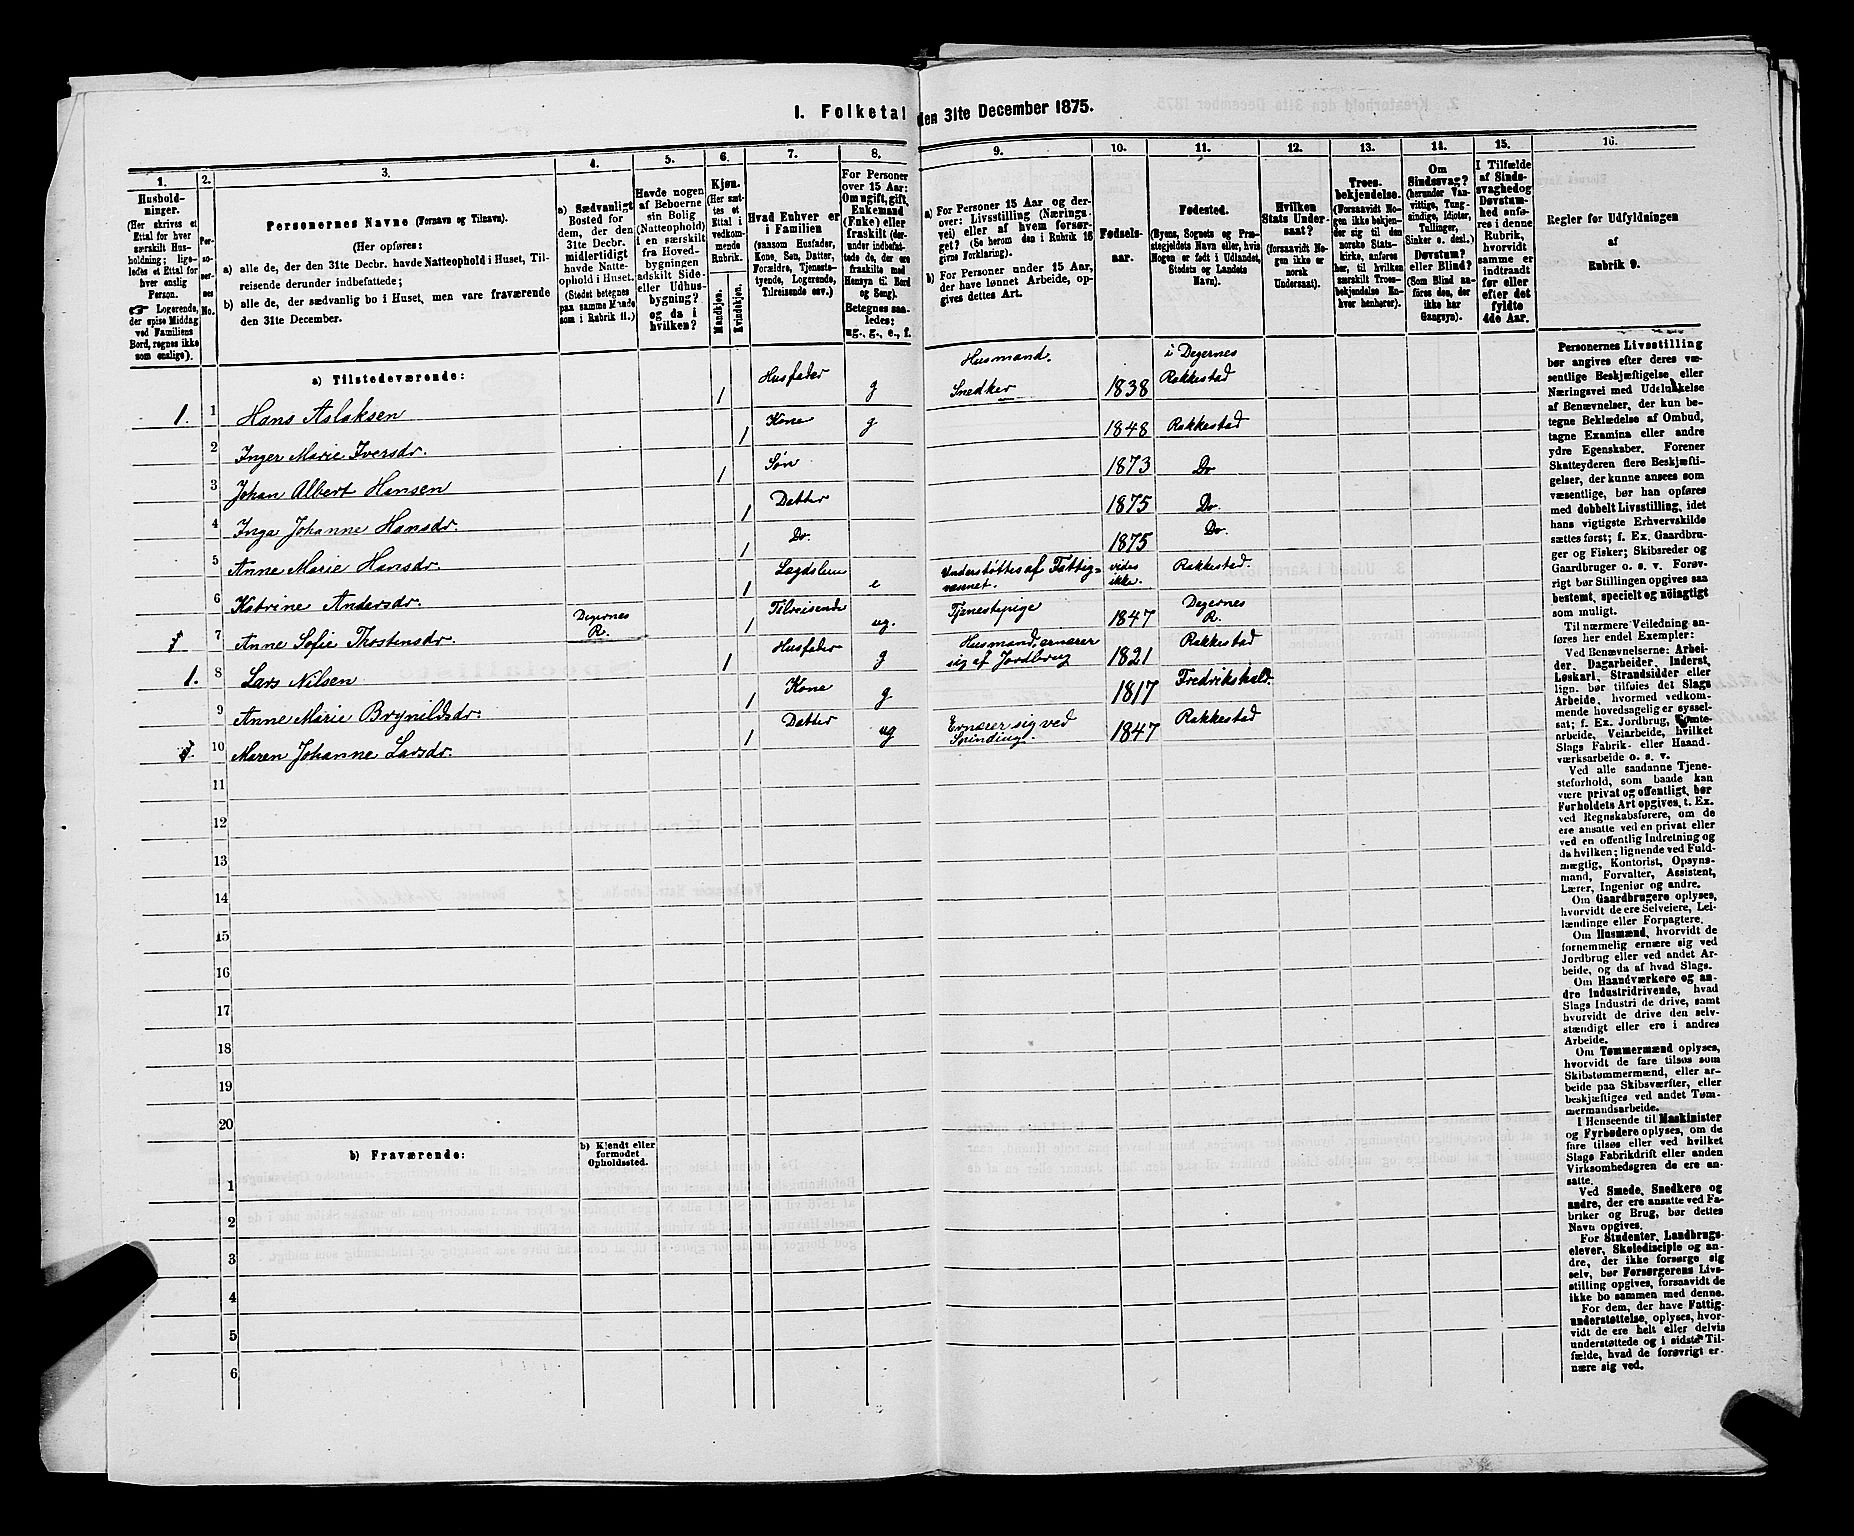 I. Folketal den 31te December 1875.
1.
Husholdninger.
(Her skrives et
Ettal for hver
særskilt Husholdning; ligeledes
et Ettal for
hver enslig
Person.
Logerende,
der spise Middag
ved Familiens
Bord, regnes ikke
som enslige).
2.
Personernes
No.
3.
Personernes Navne (Fornavn og Tilnavn).
(Her opføres:
a) alle de, der den 31te Decbr. havde Natteophold i Huset, Tilreisende
derunder indbefattede;
b) alle de, der sædvanlig bo i Huset, men vare fraværende
den 31te December.
4.
a) Sædvanligt
Bosted for
dem, der den
31te Decbr.
midlertidigt
havde Natteophold
i Huset.
(Stedet betegnes
paa samme Maade
som i Rubrik 11.)
5.
Havde nogen
af Beboerne
sin Bolig
(Natteophold)
i en særskilt
fra Hovedbygningen
adskilt Side-
eller Udhusbygning?
og da i
hvilken?
6.
Kjøn.
(Her sættes
et
Ettal i
vedkommende
Rubrik.
Mandkjøn.
Kvindekjøn.
7.
Hvad Enhver er
i Familien
(saasom Husfader,
Kone, Søn, Datter,
Forældre, Tjenestetyende,
Logerende,
Tilreisende osv.)
8.
For Personer
over 15 Aar:
Om ugift, gift,
Enkemand
(Enke) eller
fraskilt (derunder
indbefattede
de, der ere
fraskilte med
Hensyn til Bord
og Seng).
Betegnes saaledes:
ug., g., e., f.
9.
a) For Personer 15 Aar og derover:
Livsstilling (Næringsvei)
eller af hvem forsørget?
(Se herom den i Rubrik 16
givne Forklaring).
b) For Personer under 15 Aar,
der have lønnet Arbeide, opgives
dettes Art.
10.
Fødselsaar.
11.
Fødested.
(Byens, Sognets og Præstegjeldets
Navn eller, hvis
Nogen er født i Udlandet,
Stedets og Landets
Navn).
12.
Hvilken
Stats Undersaat?
(forsaavidt Nogen
ikke er
norsk
Undersaat).
13.
Troesbekjendelse.
(Forsaavidt Nogen
ikke bekjender
sig til den
norske Statskirke,
anføres
her, til hvilken
særskilt Troesbekjendelse
Enhver
henhører).
14.
Om
Sindssvag?
(herunder Vanvittige,
Tungsindige,
Idioter,
Sinker o. desl.)
Døvstum?
eller Blind?
(Som Blind anføres
den, der
ikke har
Gangsyn).
15.
I Tilfælde
af Sindssvaghed
og
Døvstumhed
anføres
i denne
Rubrik,
hvorvidt
samme er
indtraadt
før eller
efter det
fyldte
4de Aar.
16.
Regler for Udfyldningen
af
Rubrik 9.
a) Tilstedeværende:
1. 1 Hans Aslaksen 1 Husfader g Husmand. Snedker 1838 i Degernes Rakkestad
2 Inger Marie Iversdr. 1 Kone g 1848 Rakkestad
3 Johan Albert Hansen 1 Søn 1873 Do
4 Inga Johanne Hansdr. 1 Datter 1875 Do.
5 Anne Marie Hansdr. 1 Do. 1875 Do.
6 Katrine Andersdr. 1 Lægdslem e Understøttes af Fattigvæsnet. vides ikke. Rakkestad.
7 Anne Sofie Thostensdr. Degernes R. 1 Tilreisende ug. Tjenestepige 1847 Degernes R.
1. 8 Lars Nilsen 1 Husfader g Husmand, ernærer sig af Jordbrug 1821 Rakkestad
9 Anne Marie Brynildsdr. 1 Kone g 1817 Fredrikshald.
10 Maren Johanne Larsdr. 1 Datter ug Ernærer sig ved Spinding. 1847 Rakkestad
11
12
13
14
15
16
17
18
19
20
b) Fraværende:
b) Kjendt eller
formodet
Opholdssted.
1
2
3
4
5
6
Personernes Livsstilling
bør angives efter deres væsentlige
Beskjæftigelse eller
Næringsvei med Udelukkelse
af Benævnelser, der kun betegne
Beklædelse af Ombud,
tagne Examina eller andre
ydre Egenskaber. Forener
Skatteyderen flere Beskjæftigelser,
der kunne ansees som
væsentlige, bør han opføres
med dobbelt Livsstilling, idet
hans vigtigste Erhvervskilde
sættes først; f. Ex. Gaardbruger
og Fisker; Skibsreder og
Gaardbruger o. s. v. Forøvrigt
bør Stillingen opgives saa
bestemt, specielt og nøiagtigt
som muligt.
Til nærmere Veiledning anføres
her endel Exempler:
Ved Benævnelserne: Arbeider,
Dagarbeider, Inderst,
Løskarl, Strandsidder eller
lign. bør tilføies det Slags
Arbeide, hvormed vedkommende
hovedsagelig er sysselsat;
f. Ex. Jordbrug, Tomtearbeide,
Veiarbeide, hvilket
Slags Fabrik- eller Haandværksarbeide
o. s. v.
Ved alle saadanne Tjenesteforhold,
som baade kan
være privat og offentligt, bør
Forholdets Art opgives, t. Ex.
ved Regnskabsførere, om de
ere ansatte ved en privat eller
ved en offentlig Indretning og
da hvilken; lignende ved Fuldmægtig,
Kontorist, Opsynsmand,
Forvalter, Assistent,
Lærer, Ingeniør og andre.
Om Gaardbrugere oplyses,
hvorvidt de ere Selveiere, Leilændinge
eller Forpagtere.
Om Husmænd, hvorvidt de
fornemmelig ernære sig ved
Jordbrug eller ved andet Arbeide,
og da af hvad Slags.
Om Haandværkere og andre
Industridrivende, hvad
Slags Industri de drive, samt
hvorvidt de drive den selvstændigt
eller ere i andres
Arbeide.
Om Tømmermænd oplyses,
hvorvidt de fare tilsøs som
Skibstømmermænd, eller arbeide
paa Skibsværfter, eller
beskjæftiges ved andet Tømmermandsarbeide.
I Henseende til Maskinister
og Fyrbødere oplyses, om de
fare tilsøs eller ved hvilket
Slags Fabrikdrift eller anden
Virksomhedsgren de ere ansatte.
Ved Smede, Snedkere og
andre, der ere ansatte ved Fabriker
og Brug, bør dettes
Navn opgives.
For Studenter, Landbrugselever,
Skoledisciple og andre,
der ikke forsørge sig
selv, bør Forsørgerens Livsstilling
opgives, forsaavidt de
ikke bo sammen med denne.
For dem, der have Fattigunderstøttelse,
oplyses, hvorvidt
de ere helt eller delvis
understøttede og i sidste Tilfælde,
hvad de forøvrigt ernære
sig ved.